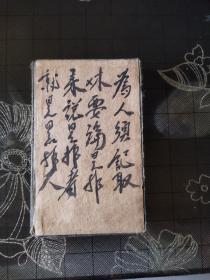 為人須記取
休要論是非
来說是非者
就是是非人